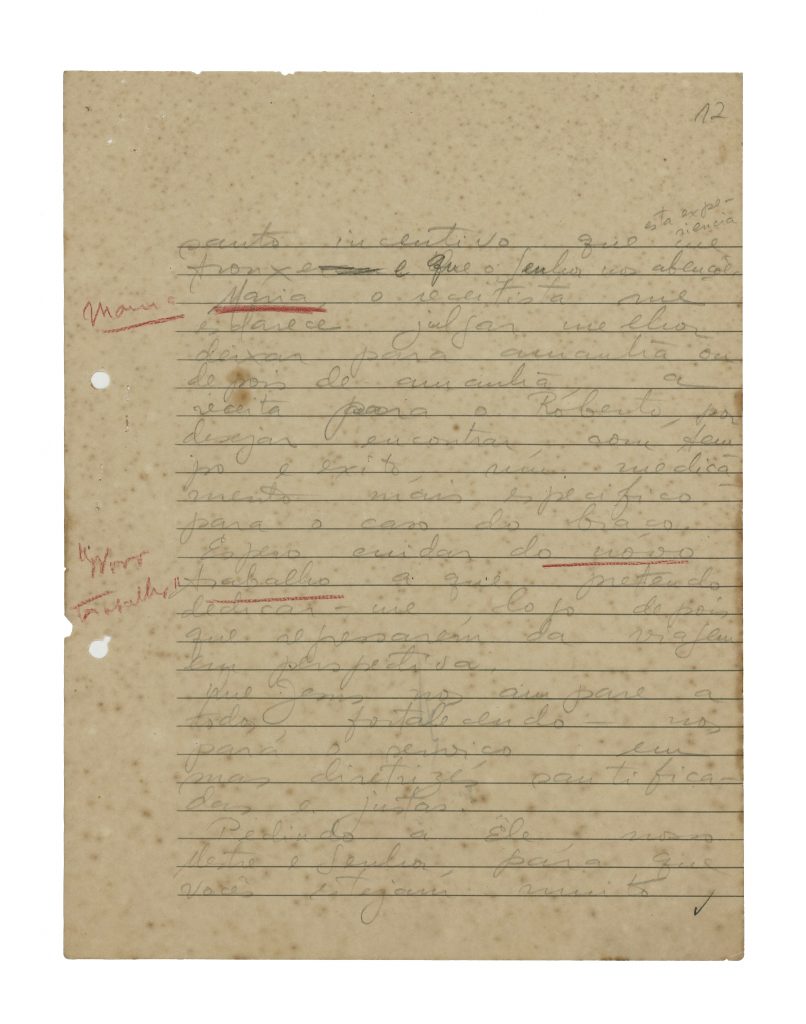 12
esta expe-
riencia
santo incentivo que me
trouxe e que o Senhor nos abençôe.
Maria
Maria, o receitista me
esclarece julgar melhor
deixar para amanhã ou
depois de amanhã, a
receita para o Róberto, por
desejar encontrar com tem
po e exito um medica
mento mais especifico
para o caso do braço.
Espero cuidar do nôvo
"Novo
trabalho a que pretendo
trabalho"
dedicar-me logo depois
que regressarem da viagem
em perspectiva.
Que Jesus nos ampare a
todos fortalecendo-nos
para o serviço em
mas diretrizes santifica-
das e justas.
Pedindo a Êle nosso
Mestre e Senhor para que
vocês estejam muito